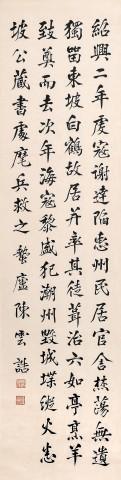 紹興二年虔寇謝達陷惠州民居官舍焚蕩無遺
獨留東坡白鶴故居并率其徒葺治六如亭烹羊
致奠而去次年海寇黎盛犯潮州毀城堞縱火至
坡公藏書處麾兵救之 黎廬陳雲誥